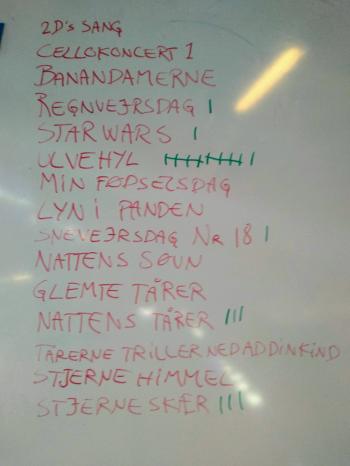 2D's SANG
CELLOKONCERT 1
BANANDAMERNE
REGNVEJRSDAG I
STAR WARS I
ULVEHYL
MIN FØDSELSDAG
LYN I PANDEN
SNEVEJRSDAG NR 18 I
NATTENS SØVN
GLEMTE TÅRER
NATTENS TÅRER III
TÅRERNE TRILLER NED AD DIN KIND
STJERNEHIMMEL
STJERNESKÆR III